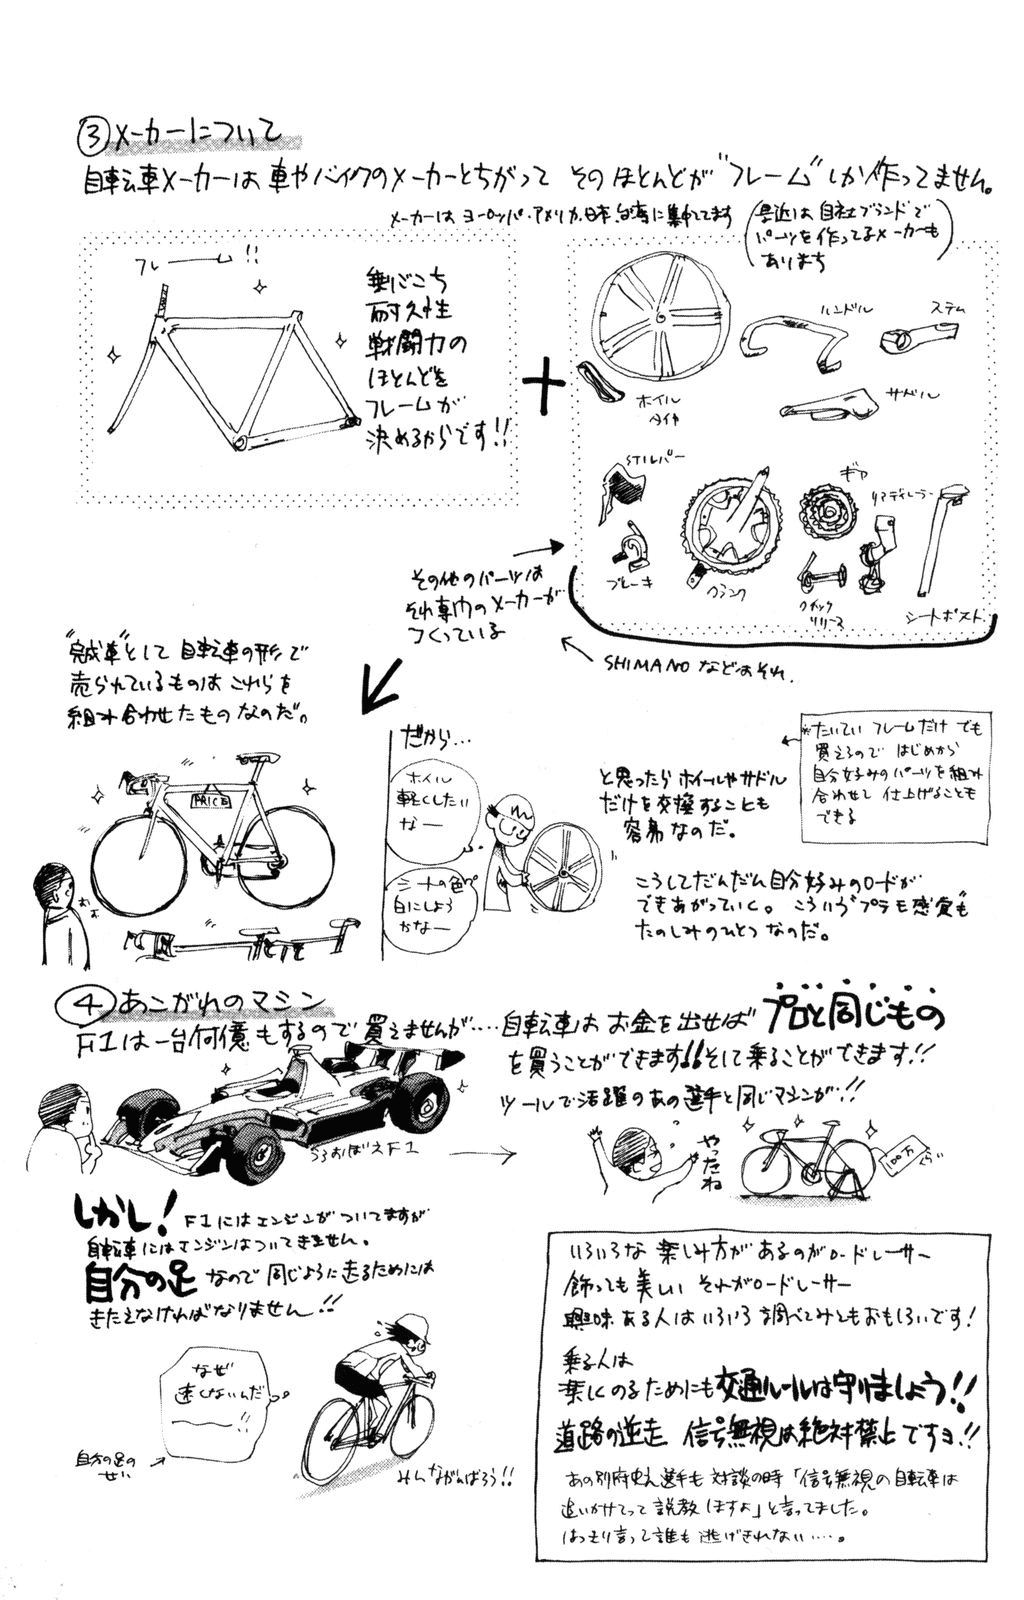 ③メーカーについて
自転車メーカーは車やバイクのメーカーとちがってそのほとんどが"フレーム"しか作ってません。
メーカーは ヨーロッパ・アメリカ、日本、台湾に集中してます
(最近は自社ブランドで
パーツを作ってるメーカーも
あります)
フレーム!!
乗りごこち
耐久性
戦闘力の
ほとんどを
フレームが
決めるからです!!
+
ホイル
タイヤ
ハンドル
ステム
サドル
STIレバー
ブレーキ
クランク
ギヤ
リアディレーラー
クイック
リリース
シートポスト
その他のパーツは
それ専門のメーカーが
つくっている
SHIMANOなどはそれ.
"完成車"として自転車の形で
売られているものはこれらを
組み合わせたものなのだ。
PRICE
おぉ
だから…
ホイル
軽くしたい
なー
シートの色
白にしよう
かなー
と思ったらホイールやサドル
だけを交換することも
容易なのだ。
※たいていフレームだけでも
買えるので はじめから
自分好みのパーツを組み
合わせて 仕上げることも
できる
こうしてだんだん自分好みのロードが
できあがっていく。こういう"プラモ感覚"も
たのしみのひとつなのだ。
④あこがれのマシン
F1は一台何億もするので買えませんが…自転車はお金を出せばプロと同じもの
を買うことができます!!そして乗ることができます!!
ツールで活躍のあの選手と同じマシンが!!
うろおぼえF1
やったね
100万
くらい
しかし!F1にはエンジンがついてますが
自転車にはエンジンはついてきません。
自分の足なので同じように走るためには
きたえなければなりません!!
なぜ
速くないんだ
ーー!!
自分の足の
せい
みんながんばろう!!
いろいろな楽しみ方があるのがロードレーサー
飾っても美しい それがロードレーサー
興味ある人はいろいろ調べてみてもおもしろいです!
乗る人は
楽しくのるためにも交通ルールは守りましょう!!
道路の逆走 信号無視は絶対禁止ですヨ!!
あの別府史之選手も対談の時「信号無視の自転車は
追いかけてって説教しますよ」と言ってました。
はっきり言って誰も逃げきれない……。